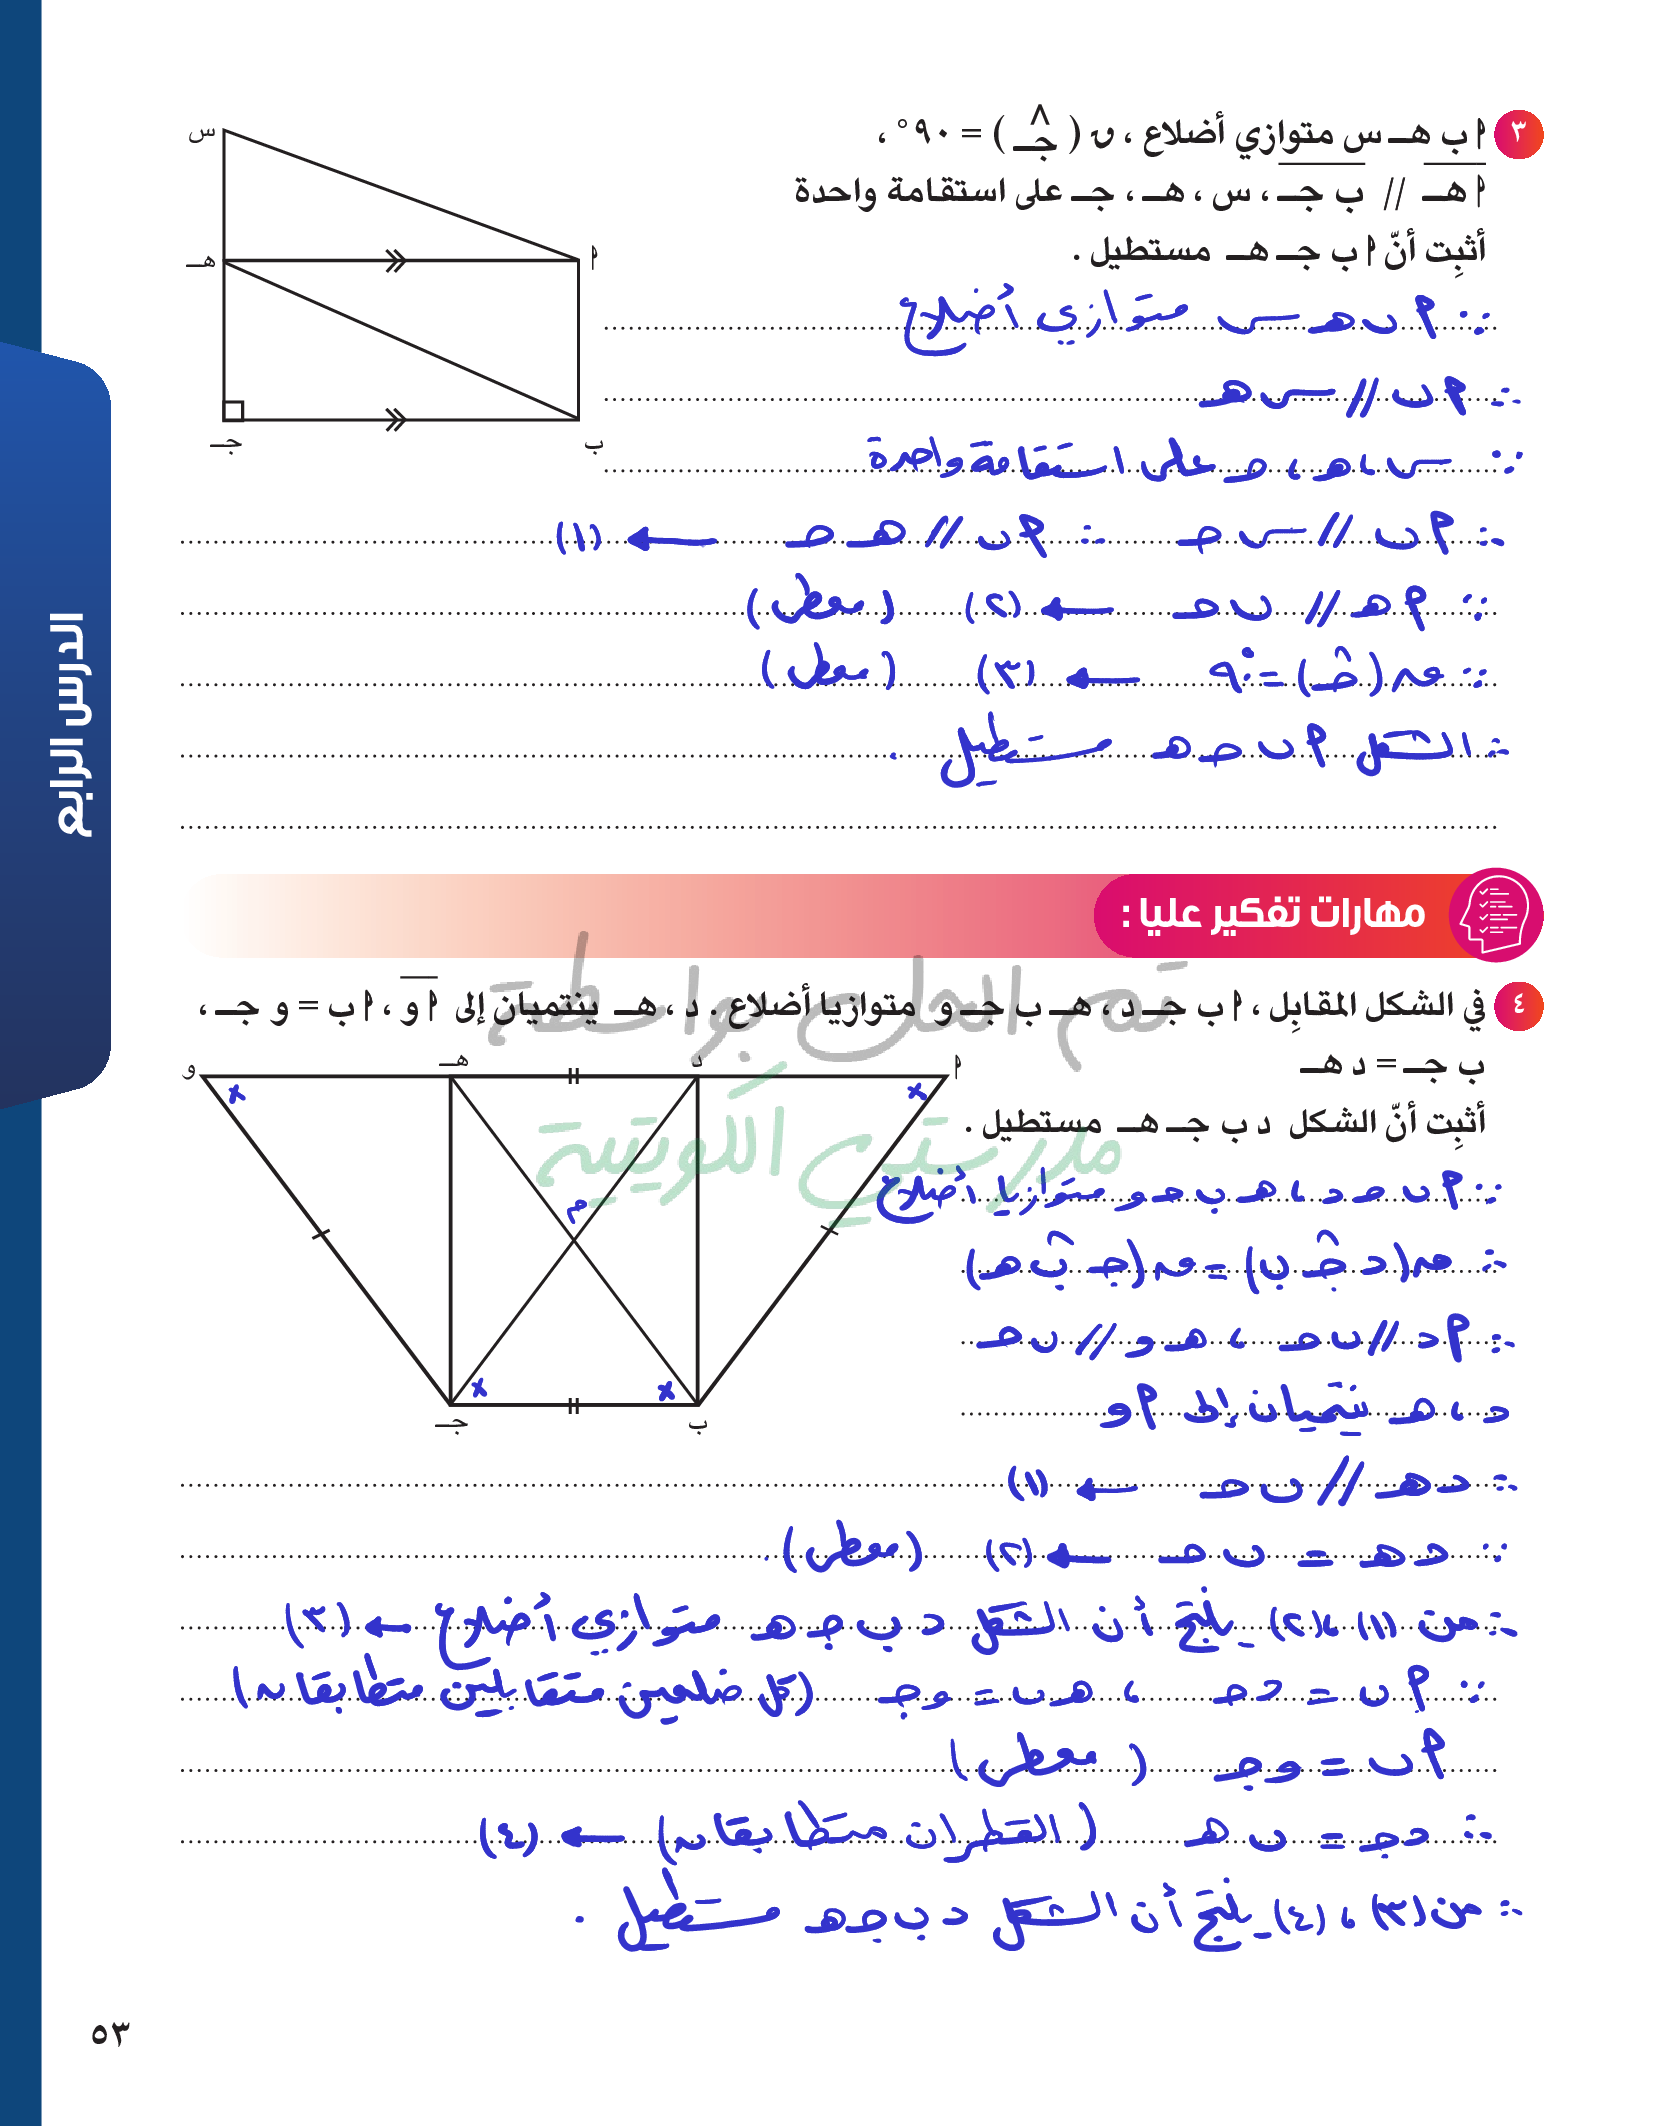 ٣ أ ب هـ س متوازي أضلاع ، ق ( جـ ) = ٩٠° ،
أ هـ // ب جـ ، س ، هـ ، جـ على استقامة واحدة
أثبِت أنّ أ ب جـ هـ مستطيل .
س
هـ
أ
جـ
ب
∵ أ ب هـ س متوازي أضلاع
∴ أ ب // س هـ
∵ س ، هـ ، جـ على استقامة واحدة
∴ أ ب // س جـ ∴ أ ب // هـ جـ ← (١)
∵ أ هـ // ب جـ ← (٢) (معطى)
∵ ق (جـ) = ٩٠° ← (٣) (معطى)
∴ الشكل أ ب جـ هـ مستطيل .
الدرس الرابع
مهارات تفكير عليا :
٤ في الشكل المقابِل ، أ ب جـ د ، هـ ب جـ و متوازيا أضلاع . د ، هـ ينتميان إلى أ و ، أ ب = و جـ ،
ب جـ = د هـ
أثبِت أنّ الشكل د ب جـ هـ مستطيل .
تم الحل بواسطة
مدرستي الكويتية
و
هـ
د
أ
م
جـ
ب
∵ أ ب جـ د ، هـ ب جـ و متوازيا أضلاع
∴ ق (د جـ ب) = ق (جـ ب هـ)
∴ أ د // ب جـ ، هـ و // ب جـ
د ، هـ ينتميان إلى أ و
∴ د هـ // ب جـ ← (١)
∵ د هـ = ب جـ ← (٢) (معطى)
∴ من (١) ، (٢) ينتج أن الشكل د ب جـ هـ متوازي أضلاع ← (٣)
∵ أ ب = د جـ ، هـ ب = و جـ (كل ضلعين متقابلين متطابقان)
أ ب = و جـ (معطى)
∴ د جـ = ب هـ (القطران متطابقان) ← (٤)
∴ من (٣) ، (٤) ينتج أن الشكل د ب جـ هـ مستطيل .
٥٣